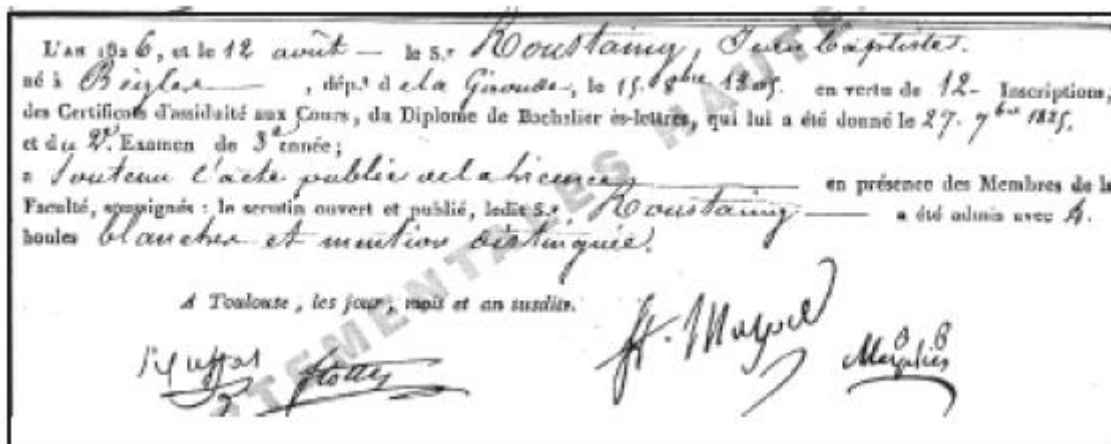 L'An 1826, et le 12 août — le S.r Roustaing, Jean Baptiste.
né à Bègles — , dép.t de la Gironde, le 15. 8bre 1805. en vertu de 12 - Inscriptions,
des Certificats d'assiduité aux Cours, du Diplome de Bachelier ès-lettres, qui lui a été donné le 27. 7bre 1825.
et du 2e. Examen de 3e année;
a soutenu l'acte public de la licence — en présence des Membres de la
Faculté, soussignés : le scrutin ouvert et publié, ledit S.r Roustaing — a été admis avec 4.
boules blanches et mention distinguée.
A Toulouse, les jour, mois et an susdits.